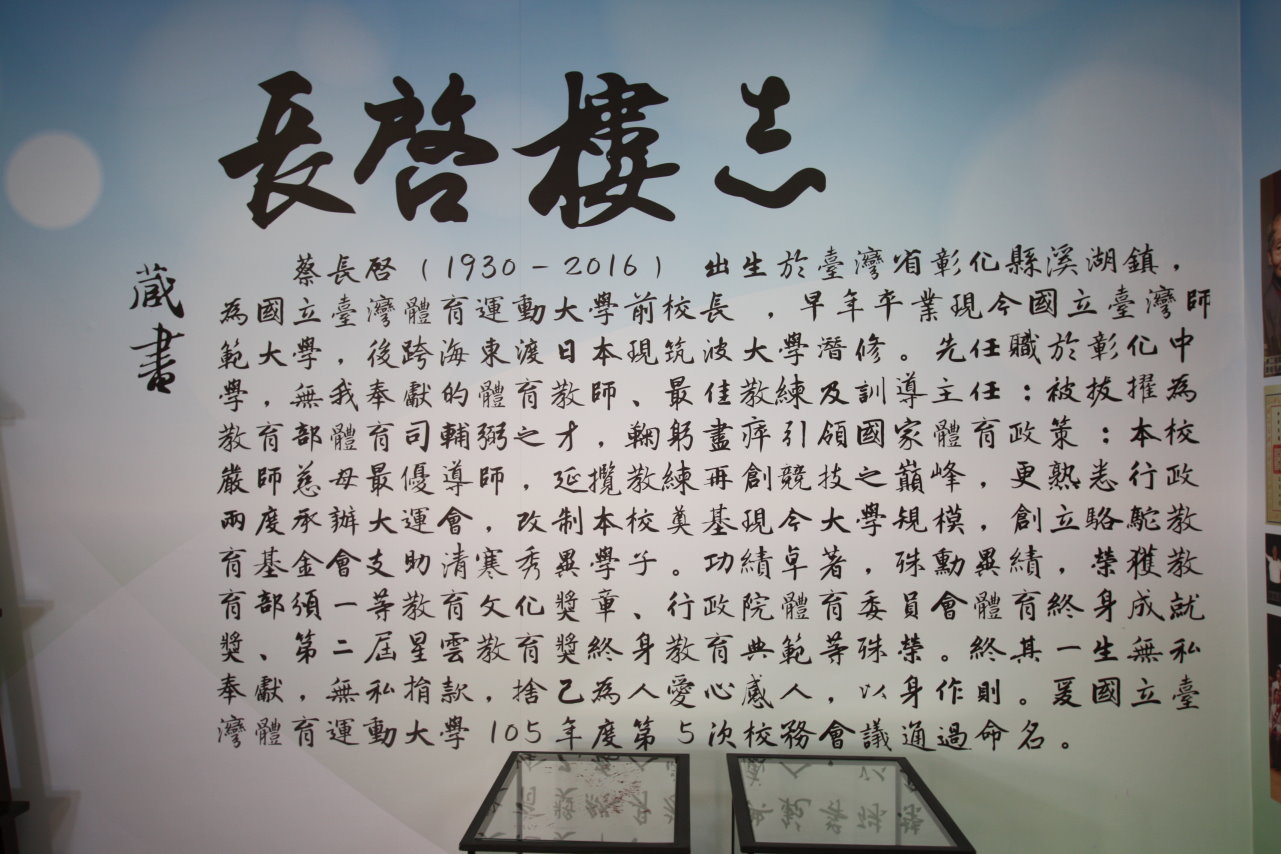 長啓樓志
蔵書
蔡長啓（1930－2016） 出生於臺灣省彰化縣溪湖鎮，
為國立臺灣體育運動大學前校長 ，早年卒業現今國立臺灣師
範大學，後跨海東渡日本現筑波大學潛修。先任職於彰化中
學，無我奉獻的體育教師、最佳教練及訓導主任：被拔擢為
教育部體育司輔弼之才，鞠躬盡瘁引領國家體育政策：本校
嚴師慈母最優導師，延攬教練再創競技之巔峰，更熟悉行政
兩度承辦大運會，改制本校奠基現今大學規模，創立駱駝教
育基金會支助清寒秀異學子。功績卓著，殊勳異績，榮獲教
育部頒一等教育文化獎章、行政院體育委員會體育終身成就
獎、第二屆星雲教育獎終身教育典範等殊榮。終其一生無私
奉獻，無私捐款，捨己為人愛心感人，以身作則。爰國立臺
灣體育運動大學105年度第5次校務會議通過命名。